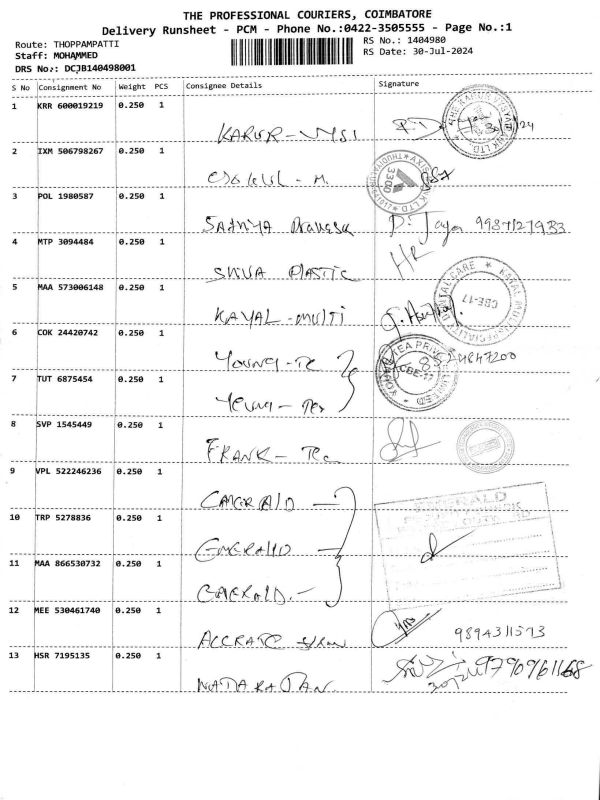 THE PROFESSIONAL COURIERS, COIMBATORE
Delivery Runsheet - PCM - Phone No.:0422-3505555 - Page No.:1
Route: THOPPAMPATTI RS No.: 1404980
Staff: MOHAMMED RS Date: 30-Jul-2024
DRS No.: DCJB140498001
S No Consignment No Weight PCS Consignee Details Signature
1 KRR 600019219 0.250 1
KARUR - VYSI
2 IXM 506798267 0.250 1
GOKUL - M.
3 POL 1980587 0.250 1
SATHYA P. Jaya 9987127933
4 MTP 3094484 0.250 1
SHIVA PLASTIC
5 MAA 573006148 0.250 1
KAYAL - MULTI
6 COK 24420742 0.250 1
YOUNG - TE
7 TUT 6875454 0.250 1
YOUNG - Tex
8 SVP 1545449 0.250 1
FRANK - Tec
9 VPL 522246236 0.250 1
EMERALD
10 TRP 5278836 0.250 1
EMERALD
11 MAA 866530732 0.250 1
EMERALD.
12 MEE 530461740 0.250 1
9894311573
13 HSR 7195135 0.250 1
NATARAJAN. 9790961168